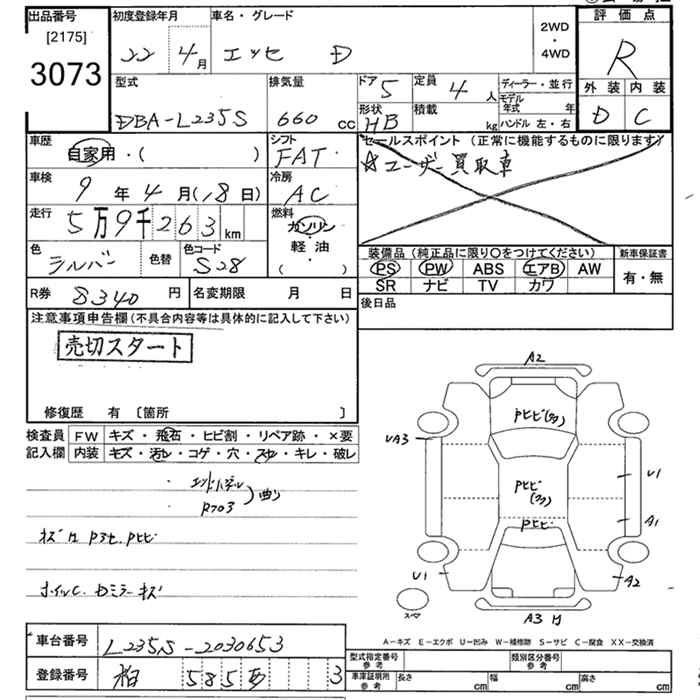 出品番号
[2175]
3073
初度登録年月
22 4月
車名・グレード
エッセ D
2WD
・
4WD
評価点
R
外装 内装
D C
型式
DBA-L235S
排気量
660 cc
ドア 5
定員 4 人
形状 HB
積載 kg
ディーラー・並行
モデル年式 年
ハンドル 左・右
車歴
自家用・( )
シフト
FAT
セールスポイント (正常に機能するものに限ります)
☆ユーザー買取車
車検
9年4月(18日)
冷房
AC
走行
5万9千263km
燃料
ガソリン
・
軽油
( )
色
シルバー
色替
色コード
S28
装備品 (純正品に限り○をつけてください)
PS PW ABS エアB AW
SR ナビ TV カワ
新車保証書
有・無
R券 8340円
名変期限 月 日
後日品
注意事項申告欄 (不具合内容等は具体的に記入して下さい)
売切スタート
修復歴 有 〔箇所 〕
検査員記入欄
FW キズ・飛石・ヒビ割・リペア跡・×要
内装 キズ・汚レ・コゲ・穴・スレ・キレ・破レ
A2
Pヒビ(多)
UA3
Pヒビ
(多)
Pヒビ
U1
A1
U1
A2
スペア
A3
ホイルC. Dミラーキズ
A-キズ E-エクボ U-凹み W-補修跡 S-サビ C-腐食 XX-交換済
車台番号 L235S-2030653
登録番号 柏 585 3
型式指定番号 参考
類別区分番号 参考
車庫証明用 参考
長さ cm
幅 cm
高さ cm